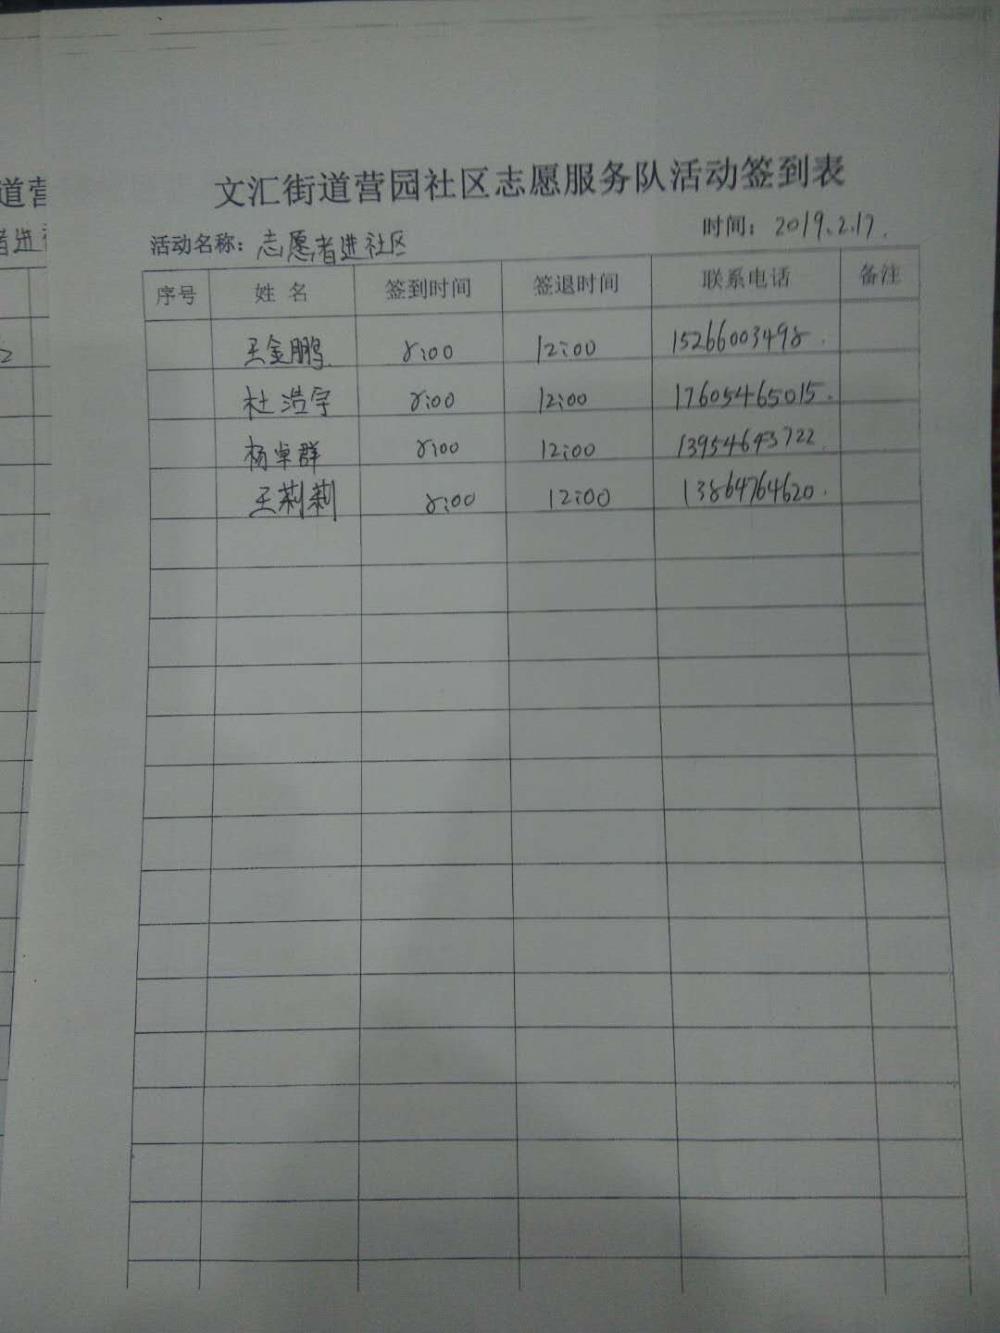 文汇街道营园社区志愿服务队活动签到表
活动名称：志愿者进社区 时间：2019.2.17.
序号 姓名 签到时间 签退时间 联系电话 备注
王金鹏 8:00 12:00 15266003498.
杜浩宇 8:00 12:00 17605465015.
杨卓群 8:00 12:00 13954643722
王莉莉 8:00 12:00 13864764620.
道营
者进